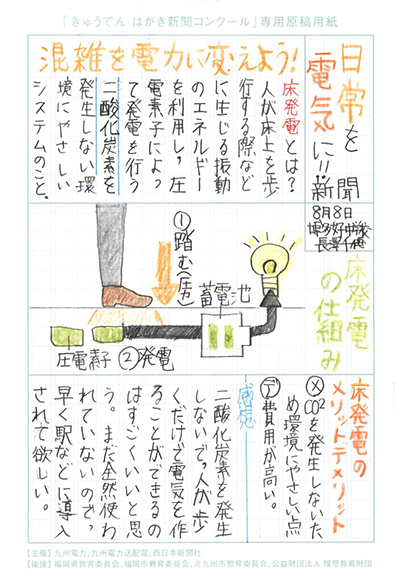 「きゅうでん はがき新聞コンクール」専用原稿用紙
日常を
電気に!!
新聞
8月8日
混雑を電力に変えよう!
床発電とは?
人が床上を歩
行する際など
に生じる振動
のエネルギー
を利用し、圧
電素子によっ
て発電を行う
二酸化炭素を
発生しない環
境にやさしい
システムのこと。
床発電
の仕組み
①踏む(圧力)
蓄電池
圧電素子
②発電
床発電の
メリットデメリット
㋱CO2を発生しないた
め環境にやさしい点
㋢費用が高い。
感想
二酸化炭素を発生
しないで、人が歩
くだけで電気を作
ることができるの
はすごくいいと思
う。まだ全然使わ
れていないので、
早く駅などに導入
されて欲しい。
【主催】九州電力、九州電力送配電、西日本新聞社
【後援】福岡県教育委員会、福岡市教育委員会、北九州市教育委員会、公益財団法人 理想教育財団